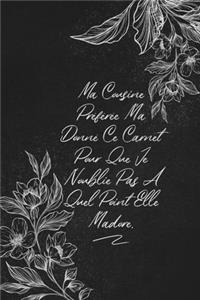 Ma Cousine
Préférée Ma
Donné Ce Carnet
Pour Que Je
N'oublie Pas A
Quel Point Elle
M'adore.